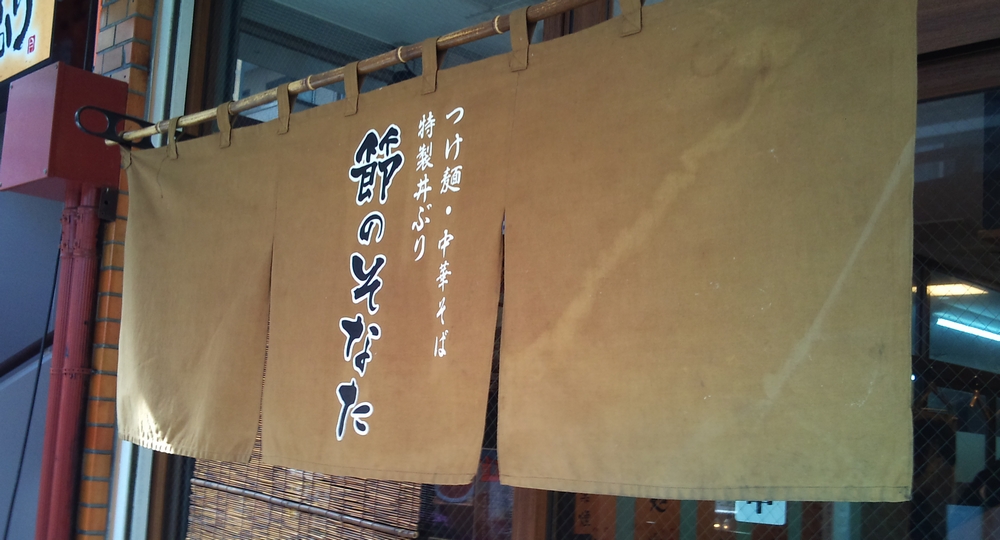 つけ麺・中華そば
特製丼ぶり
節のそなた